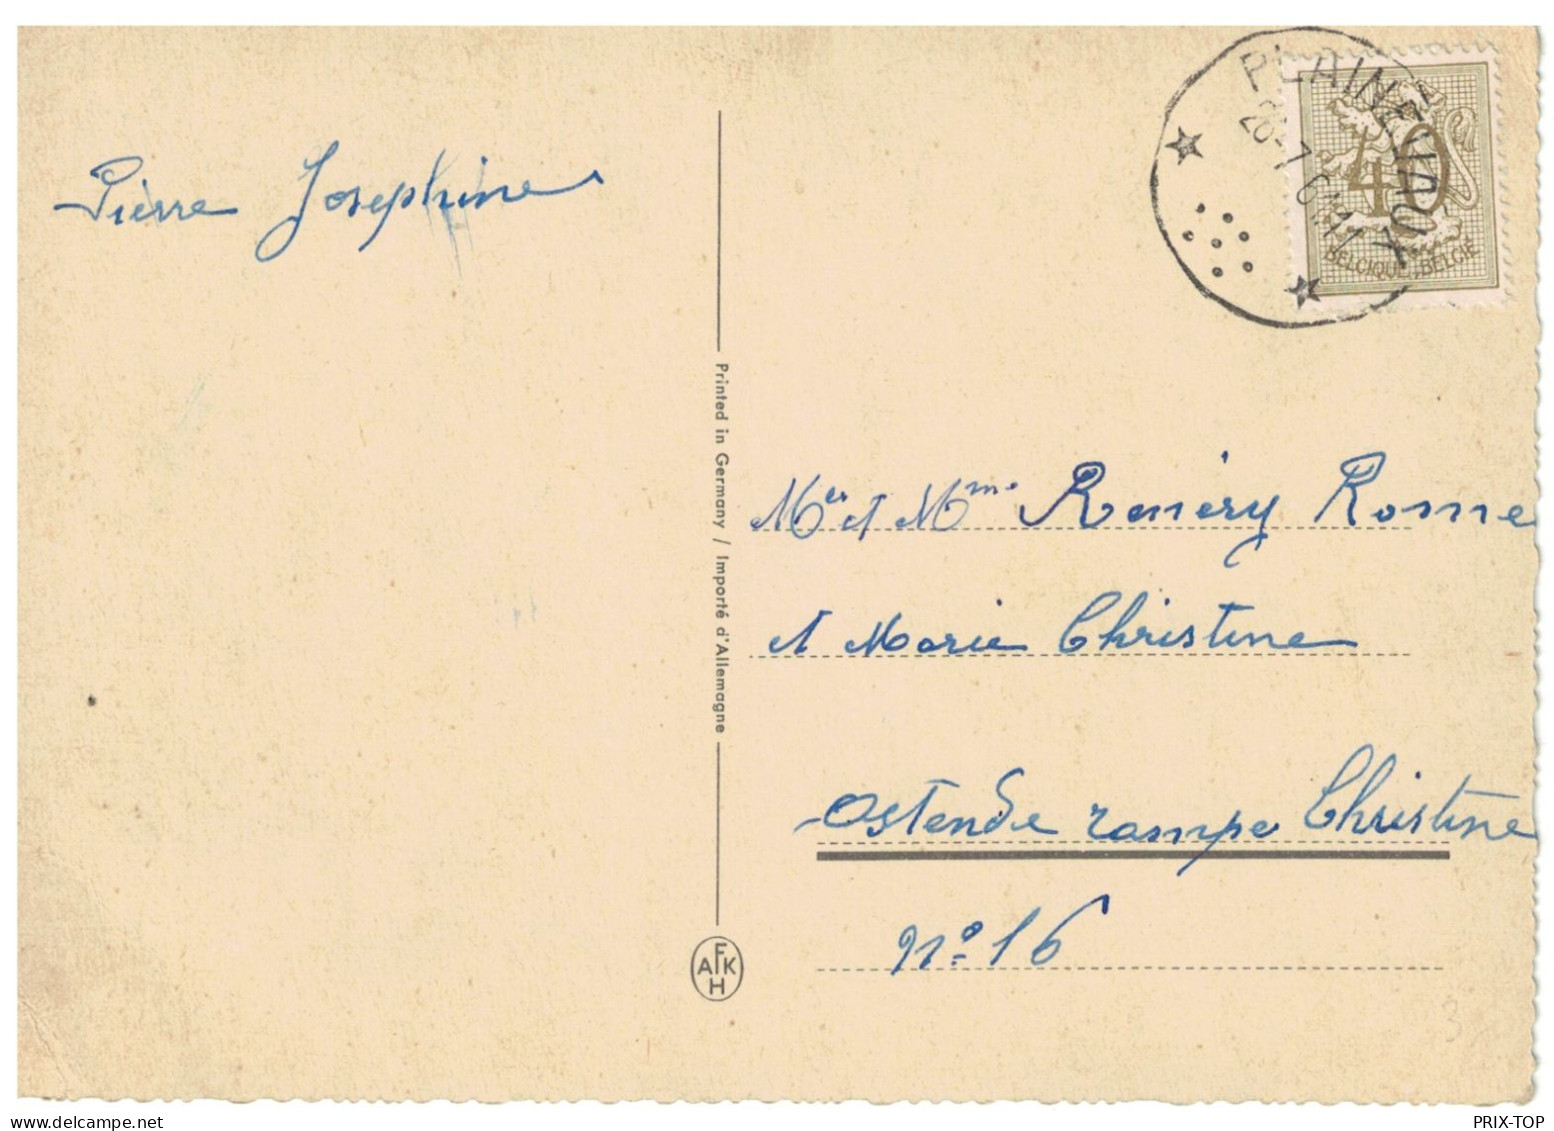 Pierre Josephine
PLAINEVAUX
40
BELGIQUE BELGIË
Printed in Germany / Importé d'Allemagne
Mer et Mme Reméry Rome
et Marie Christine
Ostende rampe Christine
N° 16
AFKH
3
PRIX-TOP